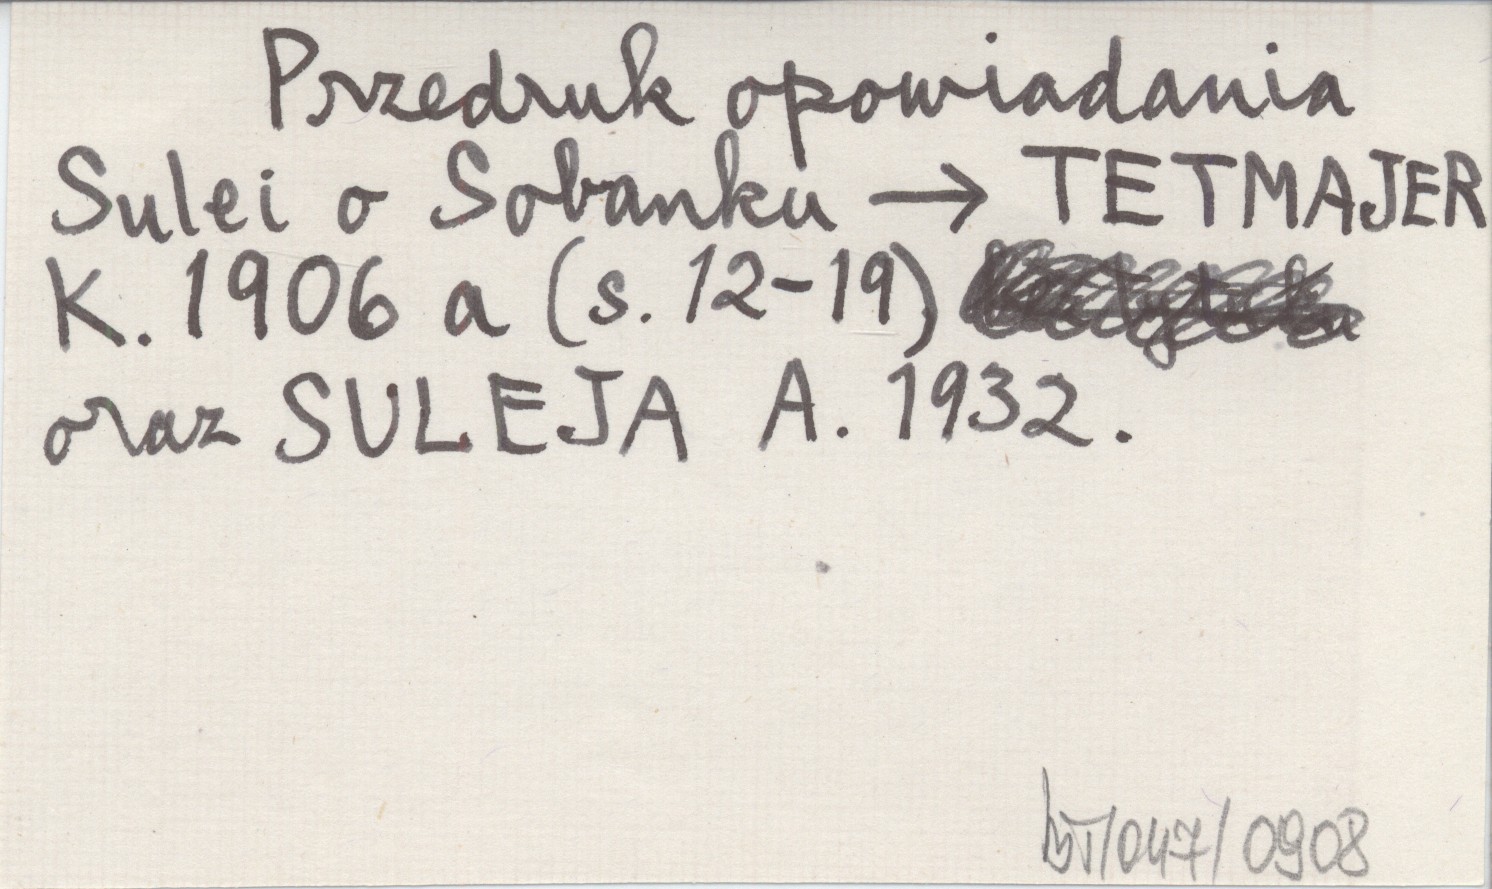 Przedruk opowiadania
Sulei o Sobanku → TETMAJER
K. 1906 a (s. 12-19)
oraz SULEJA A. 1932.
/047/0908